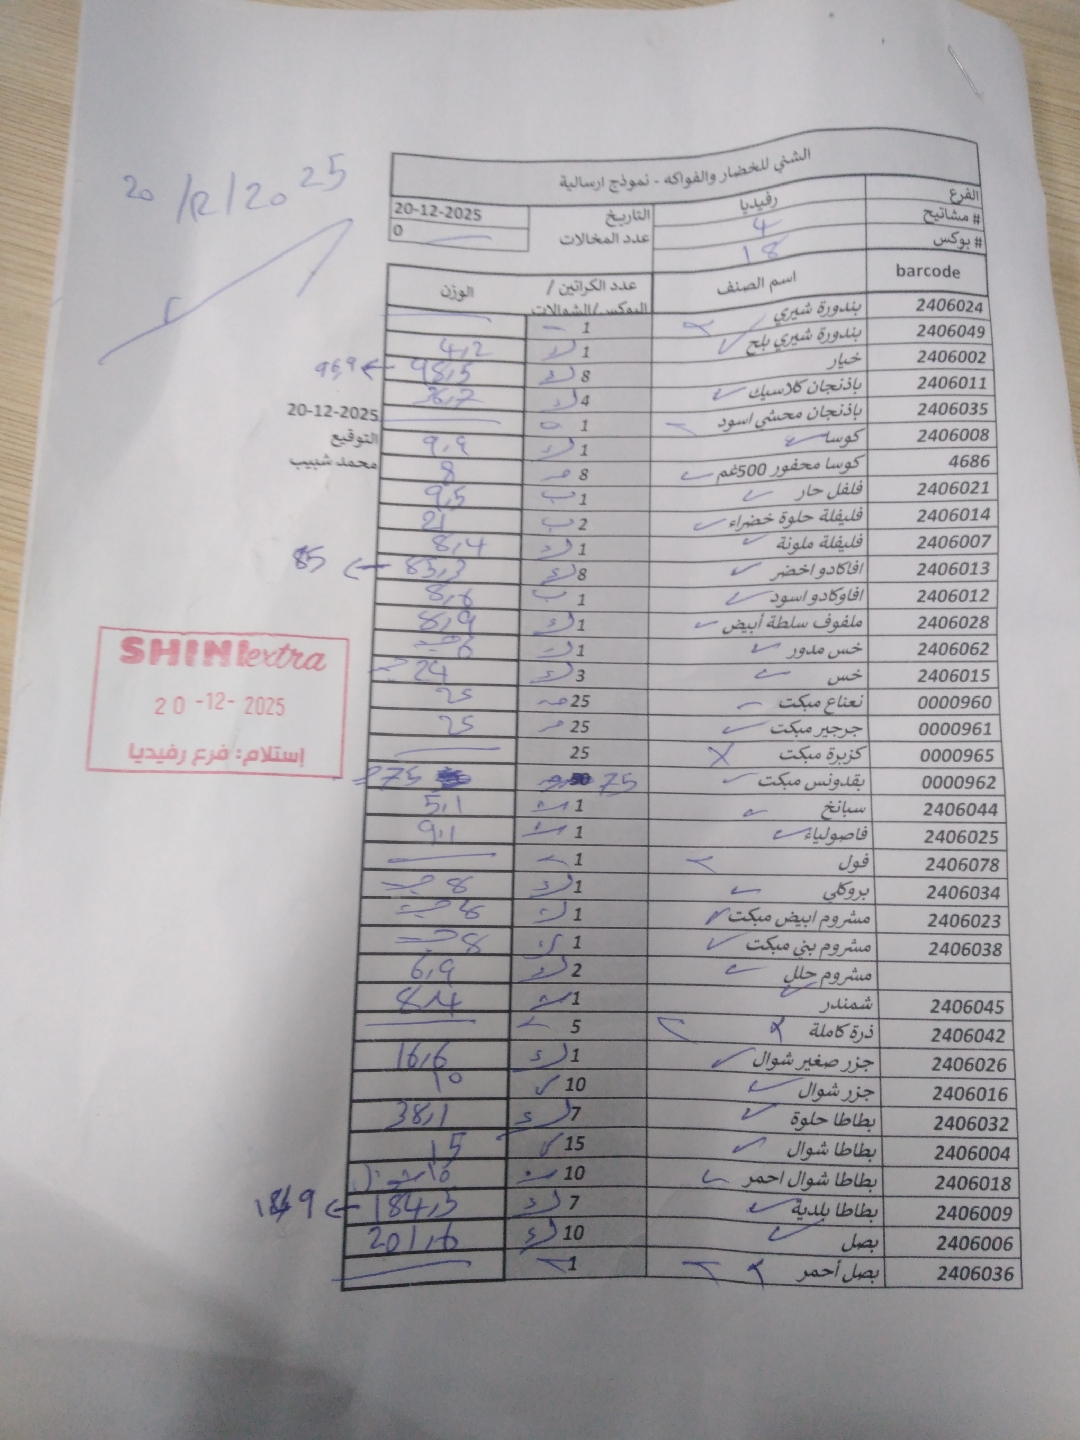 20/12/2025
الشني للخضار والفواكه - نموذج ارسالية
الفرع رفيديا التاريخ 20-12-2025
# مشاتيح 4 عدد المخالات 0
# بوكس 18
barcode اسم الصنف عدد الكراتين / البوكس/الشوالات الوزن
2406024 بندورة شيري 1
2406049 بندورة شيري بلح 1 4,2
2406002 خيار 8 98,5
2406011 باذنجان كلاسيك 4
2406035 باذنجان محشي اسود 1
2406008 كوسا 1 9,9
4686 كوسا محفور 500غم 8 8
2406021 فلفل حار 1 9,5
2406014 فليفلة حلوة خضراء 2 21
2406007 فليفلة ملونة 1 8,4
2406013 افاكادو اخضر 8 85,3 85
2406012 افاوكادو اسود 1
2406028 ملفوف سلطة أبيض 1 8,9
2406062 خس مدور 1
2406015 خس 3 24
0000960 نعناع مبكت 25 25
0000961 جرجير مبكت 25 25
0000965 كزبرة مبكت 25
0000962 بقدونس مبكت 75 75
2406044 سبانخ 1 5,1
2406025 فاصولياء 1 9,1
2406078 فول 1
2406034 بروكلي 1 8
2406023 مشروم ابيض مبكت 1 8
2406038 مشروم بني مبكت 1 8
مشروم حلل 2 6,9
2406045 شمندر 1 8,4
2406042 ذرة كاملة 5
2406026 جزر صغير شوال 1 16,6
2406016 جزر شوال 10 10
2406032 بطاطا حلوة 7 38,1
2406004 بطاطا شوال 15 15
2406018 بطاطا شوال احمر 10
2406009 بطاطا بلدية 7 184,5
2406006 بصل 10 201,6
2406036 بصل أحمر 1
20-12-2025
التوقيع
محمد شبيب
SHINI extra
20-12-2025
إستلام: فرع رفيديا